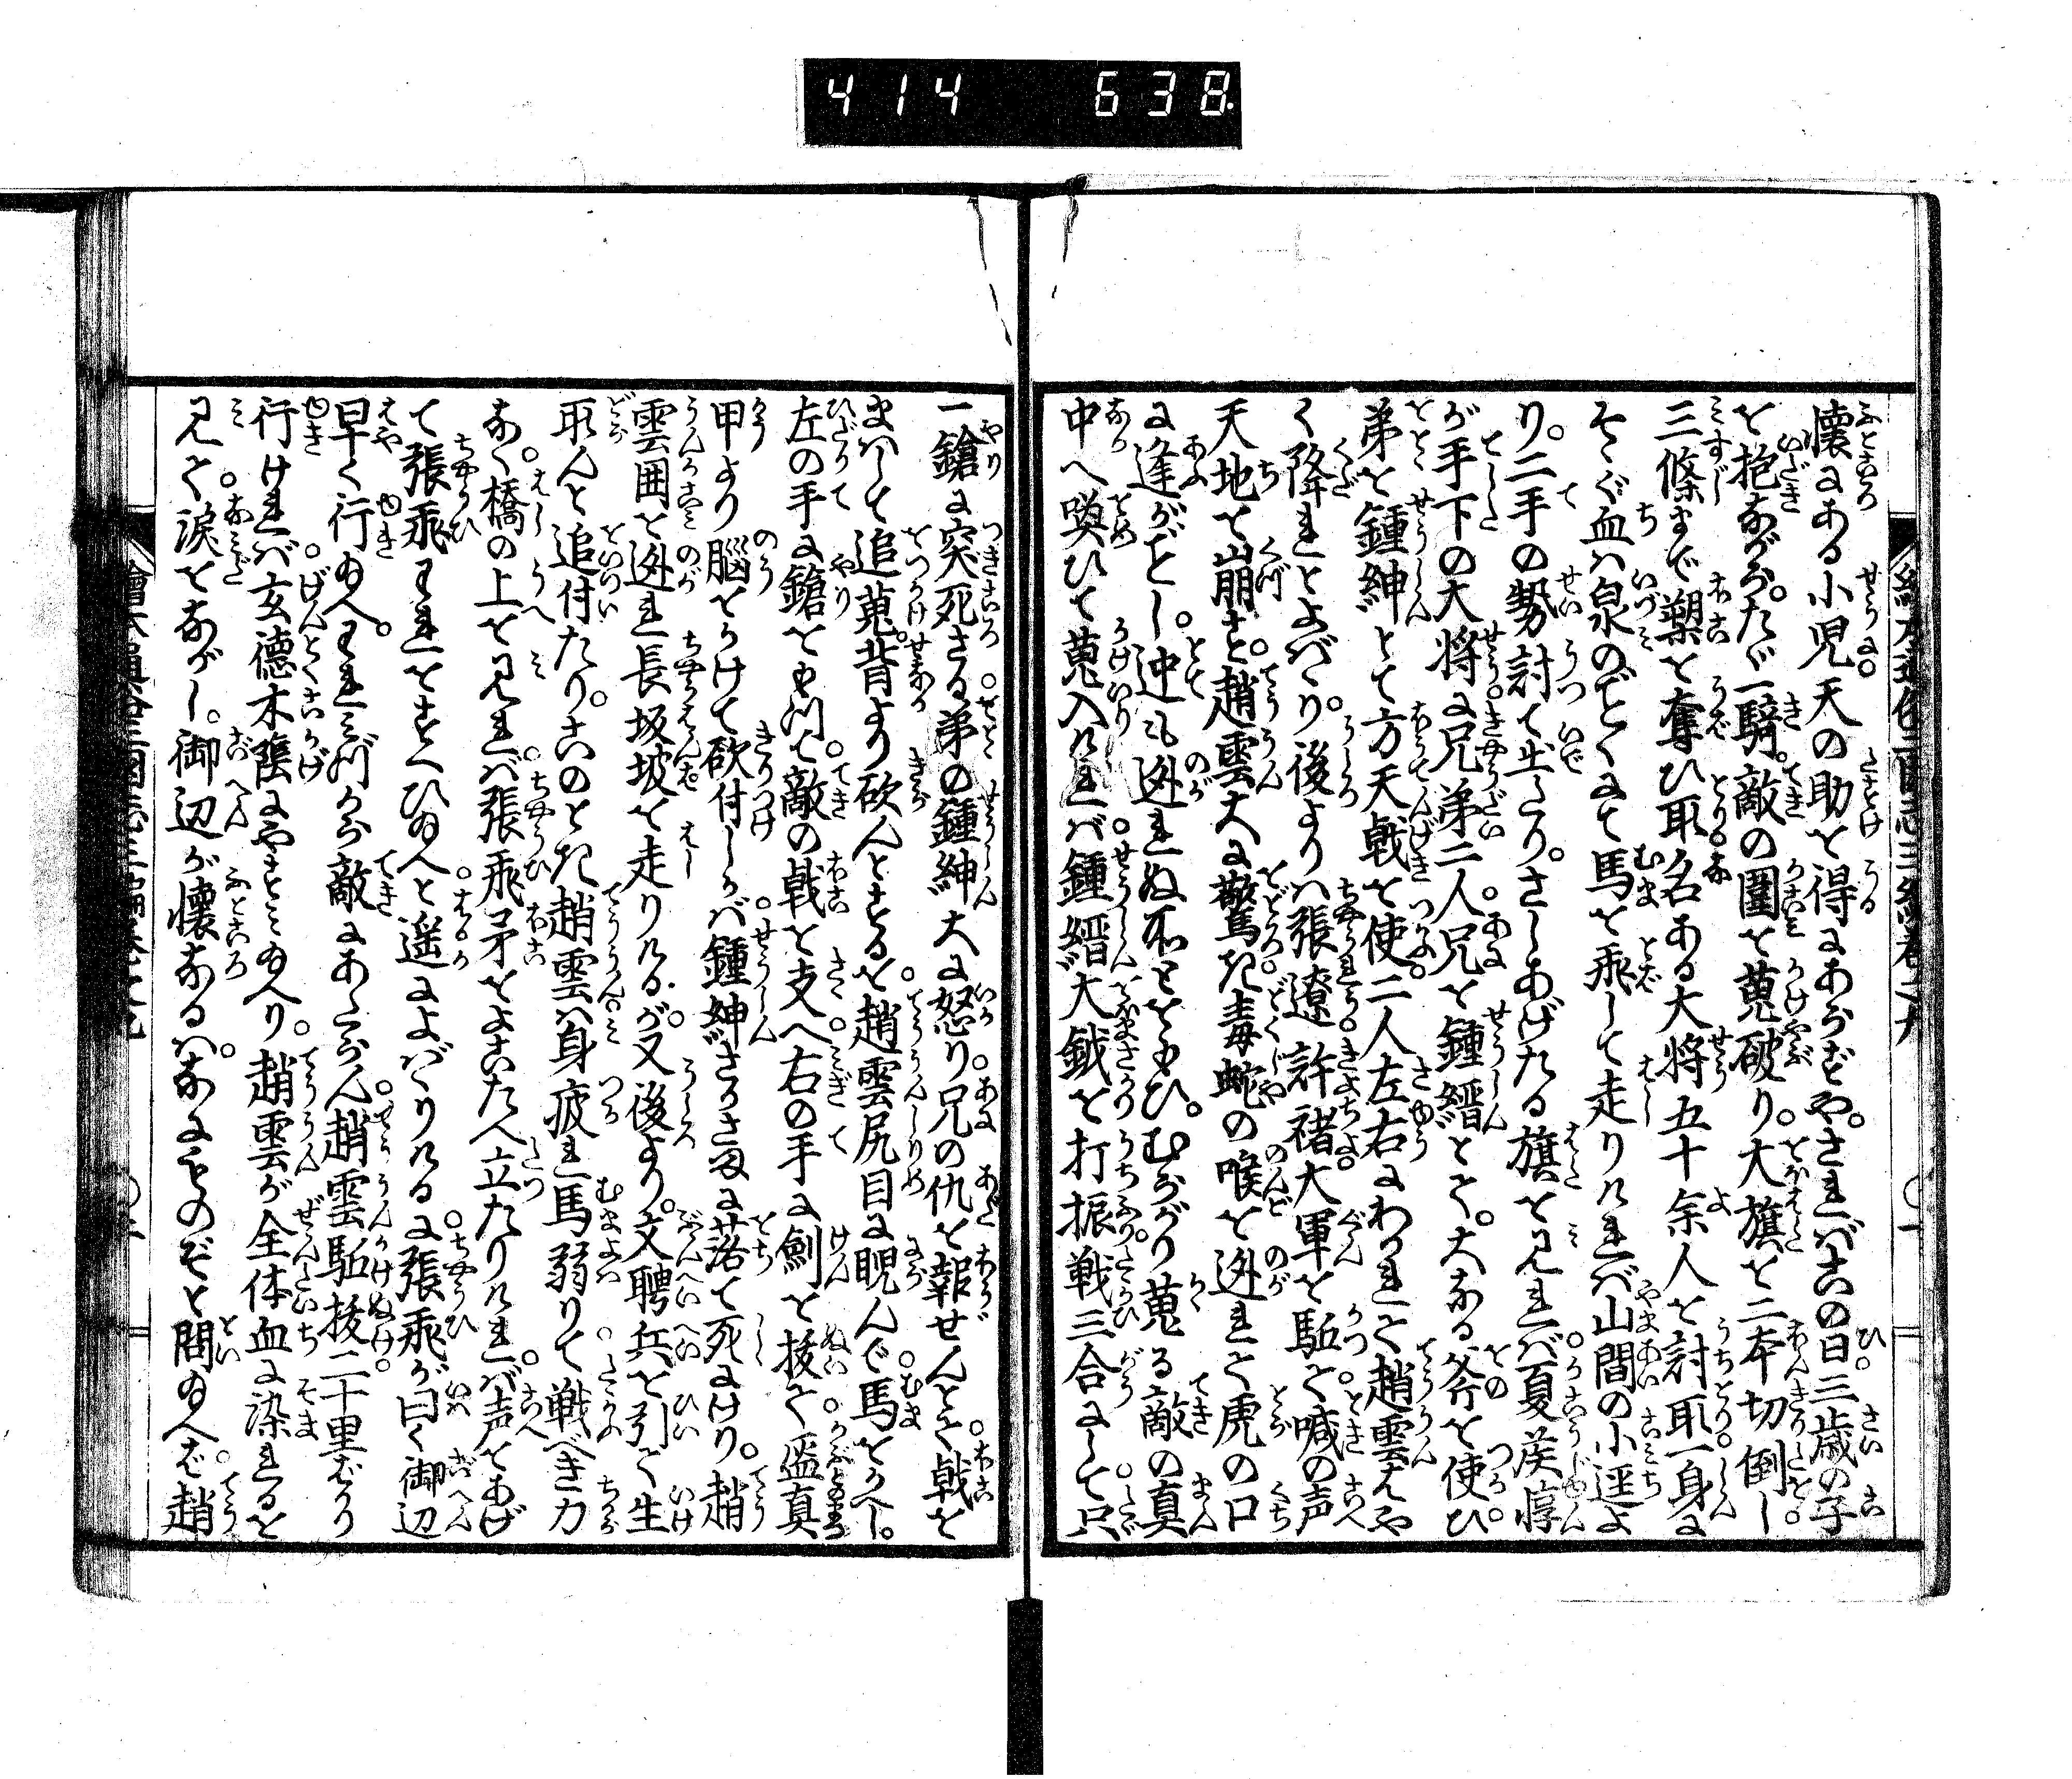 414 638
懐にある小児天の助を得にあらずや。されバ古の日三歳の子
を抱ながら。たゞ一騎。敵の囲を蒐破り。大旗を二本切倒し
三條まで槊を奪ひ取。名ある大将五十余人を討取一身に
そゝぐ血ハ泉のごとくにて馬を飛して走りければ山間の小逕よ
り。二手の勢討て出たり。さしあげたる旗を見れば夏侯惇
が手下の大将に兄弟二人。兄を鍾縉とて。大なる斧を使ひ。
弟を鍾紳とて方天戟を使。二人左右にわかれて趙雲はや
く降れとよばゝり。後よりハ張遼許褚大軍を駈て喊の声
天地を崩す。趙雲大に驚き毒蛇の喉を迯れて虎の口
に逢がごとし。迚も迯れぬ所とをもひ。むらがり蒐る敵の真
中へ喚ひて蒐入ければ鍾縉大鉞を打振戦三合にして只
一鎗に突死さる弟の鍾紳大に怒り兄の仇を報ぜんとて戟を
まはして追蒐背より砍んとするを趙雲尻目に睨んで馬をかへし。
左の手に鎗をもつて敵の戟を支へ右の手に剣を抜て盔真
甲より脳をかけて砍付しかバ鍾紳さかさまに落て死にけり。趙
雲囲を迯れ長坂坡を走りけるが。又後より。文聘兵を引て生
取んと追付たり。このとき趙雲ハ身疲れ馬弱りて戦べき力
なく。橋の上を見れバ張飛矛をよこたへ立たりければ声をあげ
て張飛われをすくひ給へと遥によばゝりけるに張飛が曰く御辺
早く行給へ。われミづから敵にあたらん。趙雲駈抜二十里ばかり
行ければ玄徳木蔭にやすミ給へり。趙雲が全体血に染れるを
見て。涙をながし。御辺が懐なるハ。なにものぞと問給へば。趙